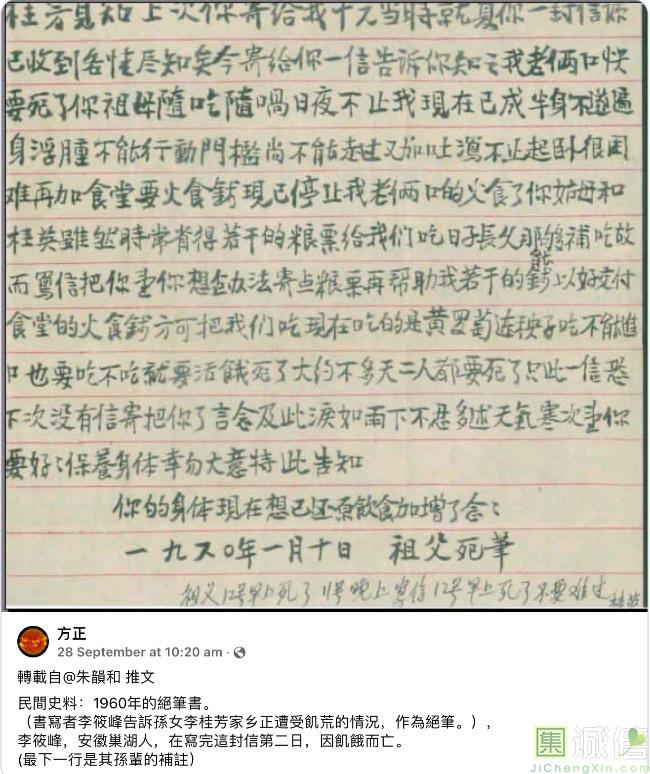 桂芳見知上次你寄给我十元当時就覆你一封信你
已收到各情尽知矣今寄给你一信告訴你知之我老俩口快
要死了你祖母隨吃隨喎日夜不止我現在已成半身不遂遍
身浮腫不能行動門檻尚不能走过又加吐瀉不止起卧很困
难再加食堂要火食錢現已停止我老俩口的火食了你姑母和
桂英雖然時常省得若干的粮票給我们吃日子長久那能够補吃故
而寫信把你望你想法寄点粮票再帮助我若干的錢以好交付
食堂的火食錢方可把我们吃現在吃的是黄罗萄连秧子吃不能進
口也要吃不吃就要活餓死了大約不多天二人都要死了只此一信恐
下次没有信寄把你了言念及此淚如雨下不忍多述天氣寒次望你
要好〻保養身体幸勿大意特此告知
你的身体現在想已还原飲食加增了念〻
一九六〇年一月十日 祖父死筆
祖父12号早上死了 11号晚上寫信12号早上死了不要难过
方正
28 September at 10:20 am ·
轉載自@朱韻和 推文
民間史料：1960年的絕筆書。
（書寫者李筱峰告訴孫女李桂芳家乡正遭受飢荒的情況，作為絕筆。），
李筱峰，安徽巢湖人，在寫完這封信第二日，因飢餓而亡。
(最下一行是其孫輩的補註）
集 诚信
JiChengXin.com